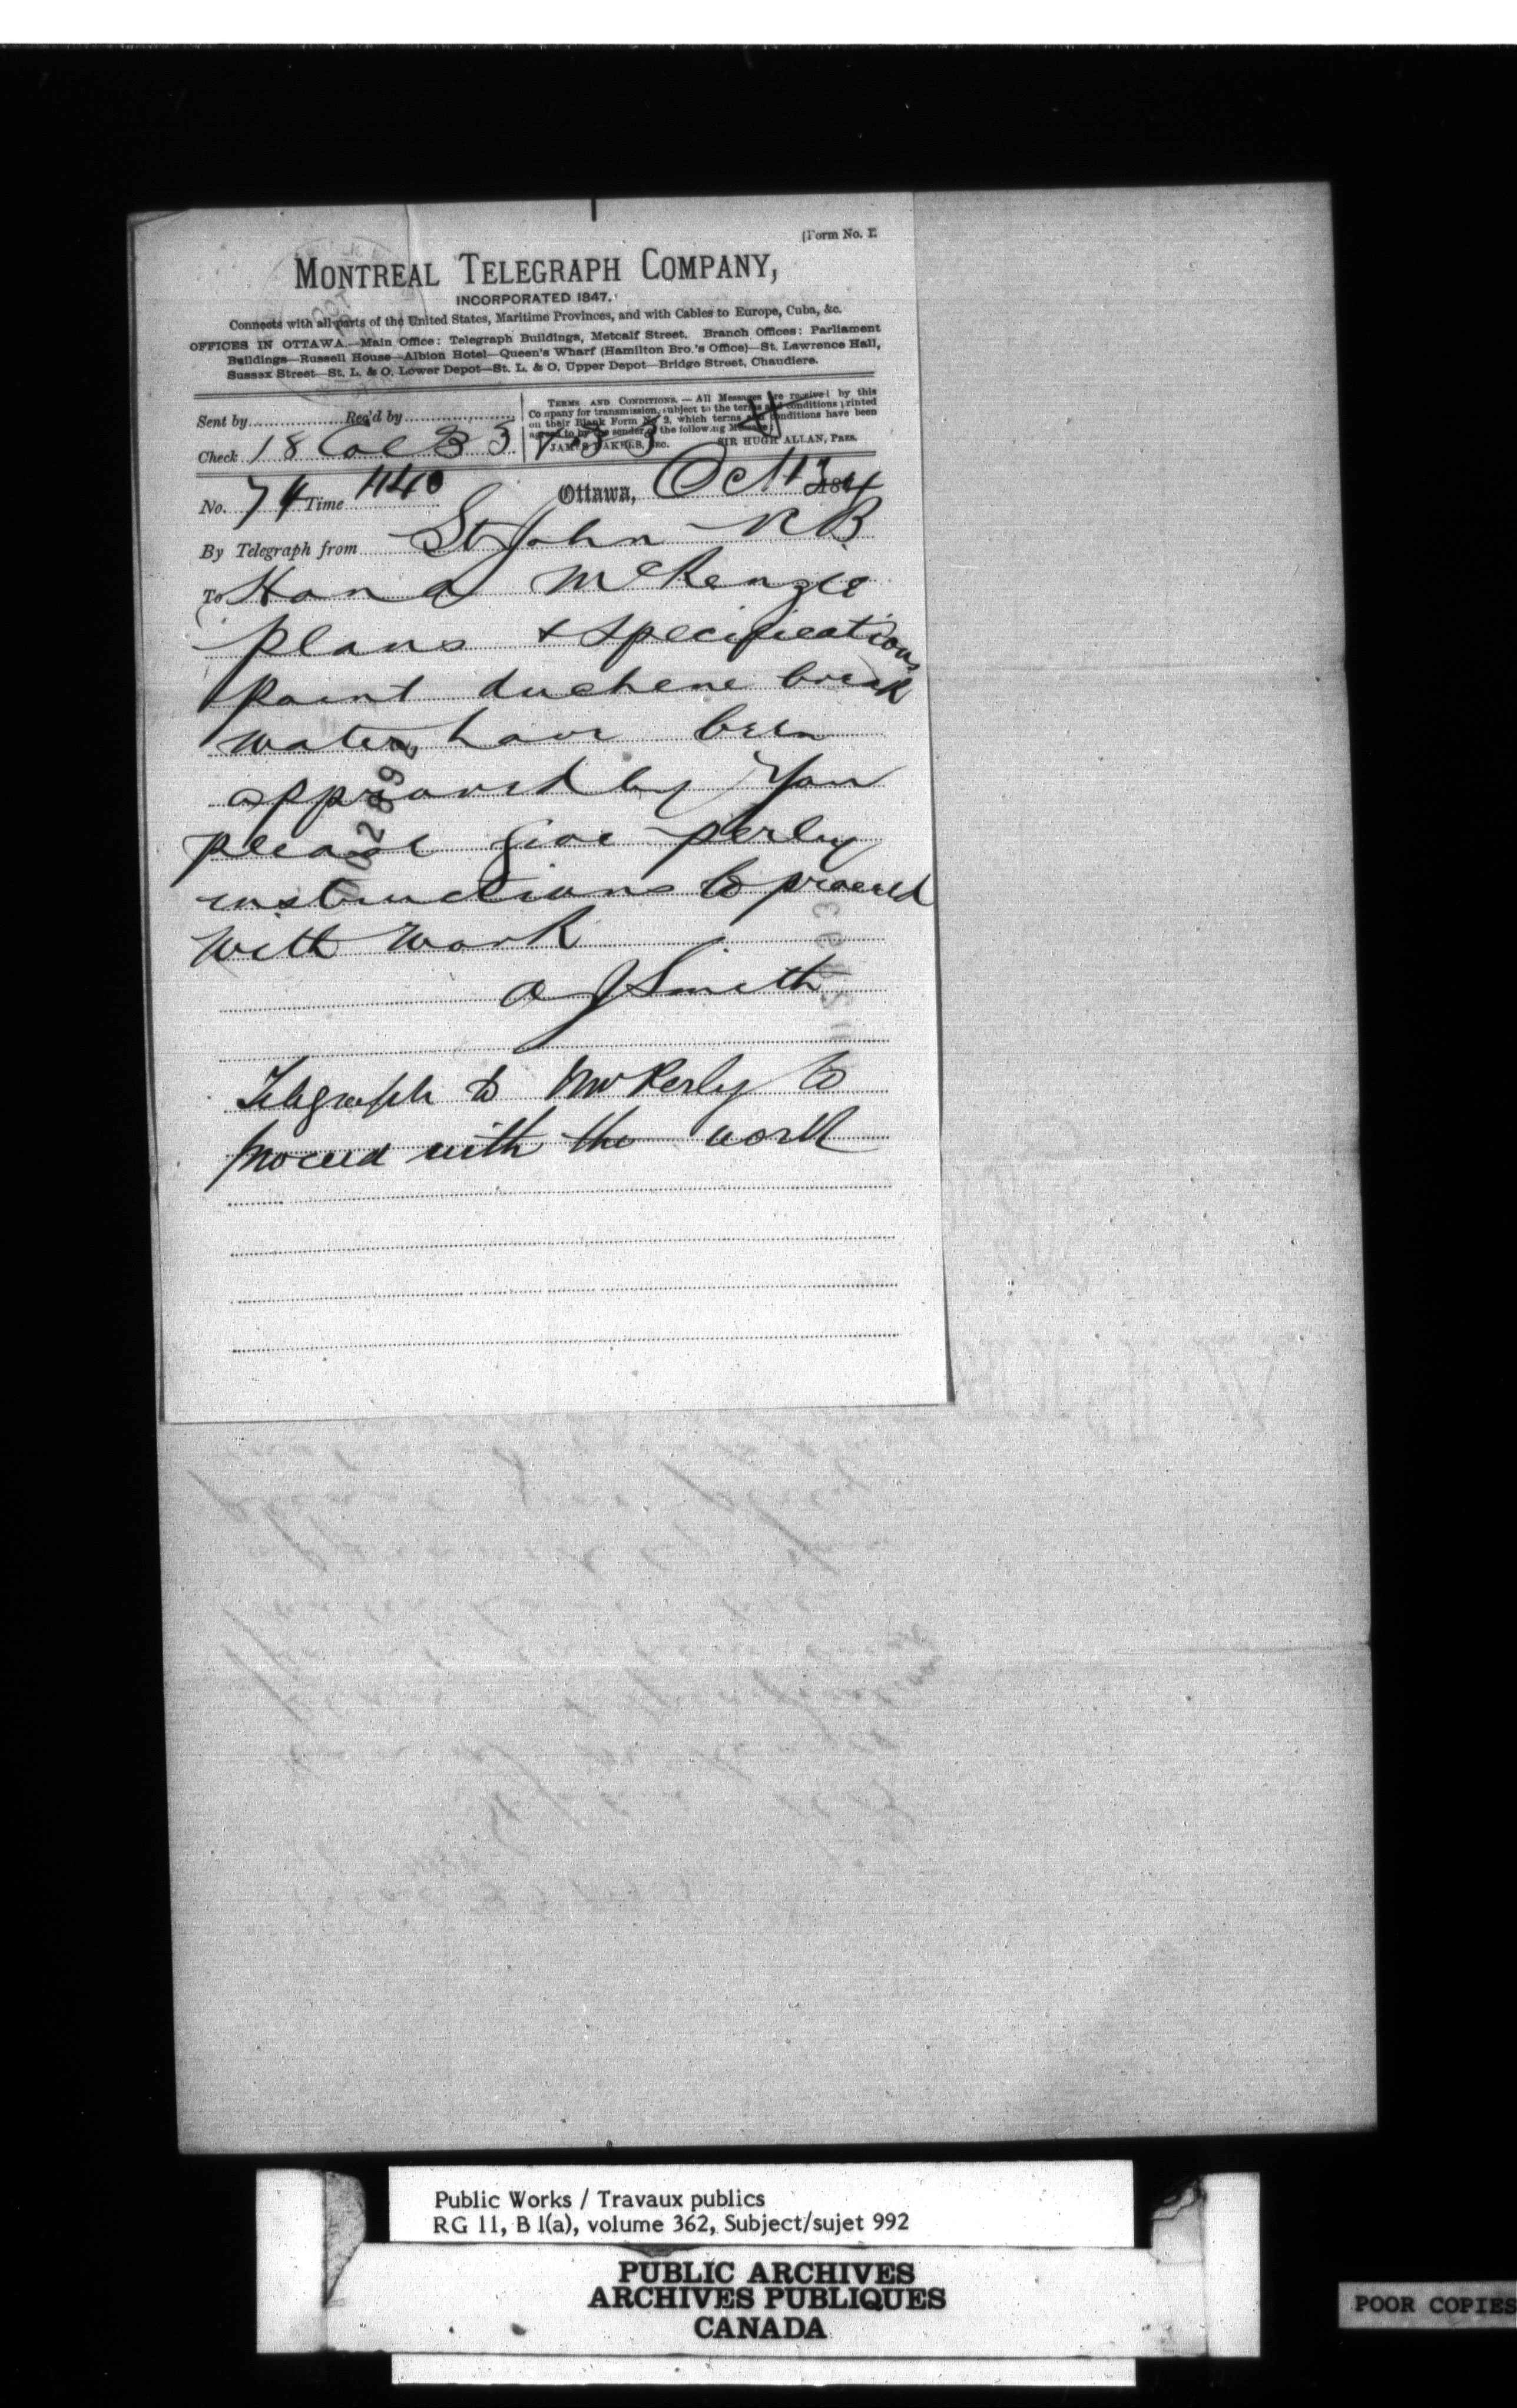 [Form No. 1.
MONTREAL TELEGRAPH COMPANY,
INCORPORATED 1847.
Connects with all parts of the United States, Maritime Provinces, and with Cables to Europe, Cuba, &c.
OFFICES IN OTTAWA.—Main Office: Telegraph Buildings, Metcalf Street. Branch Offices: Parliament
Buildings—Russell House—Albion Hotel—Queen's Wharf (Hamilton Bro.'s Office)—St. Lawrence Hall,
Sussex Street—St. L. & O. Lower Depot—St. L. & O. Upper Depot—Bridge Street, Chaudiere.
Sent by Rec'd by
TERMS AND CONDITIONS.—All Messages are received by this
Company for transmission, subject to the terms and conditions printed
on their Blank Form No 2, which terms and conditions have been
agreed to by the sender of the following Message.
JAMES DAKERS, Sec. SIR HUGH ALLAN, Pres.
Check 18 Col 33
No. 74 Time 1140 Ottawa, Oct 13 1874
By Telegraph from St John N B
To Hon a McKenzie
plans & specifications
point duchene break
water have been
approved by You
please give perley
instructions to proceed
with work
a J Smith
Telegraph to Mr Perley to
proceed with the work
Public Works / Travaux publics
RG 11, B 1(a), volume 362, Subject/sujet 992
PUBLIC ARCHIVES
ARCHIVES PUBLIQUES
CANADA
POOR COPIES